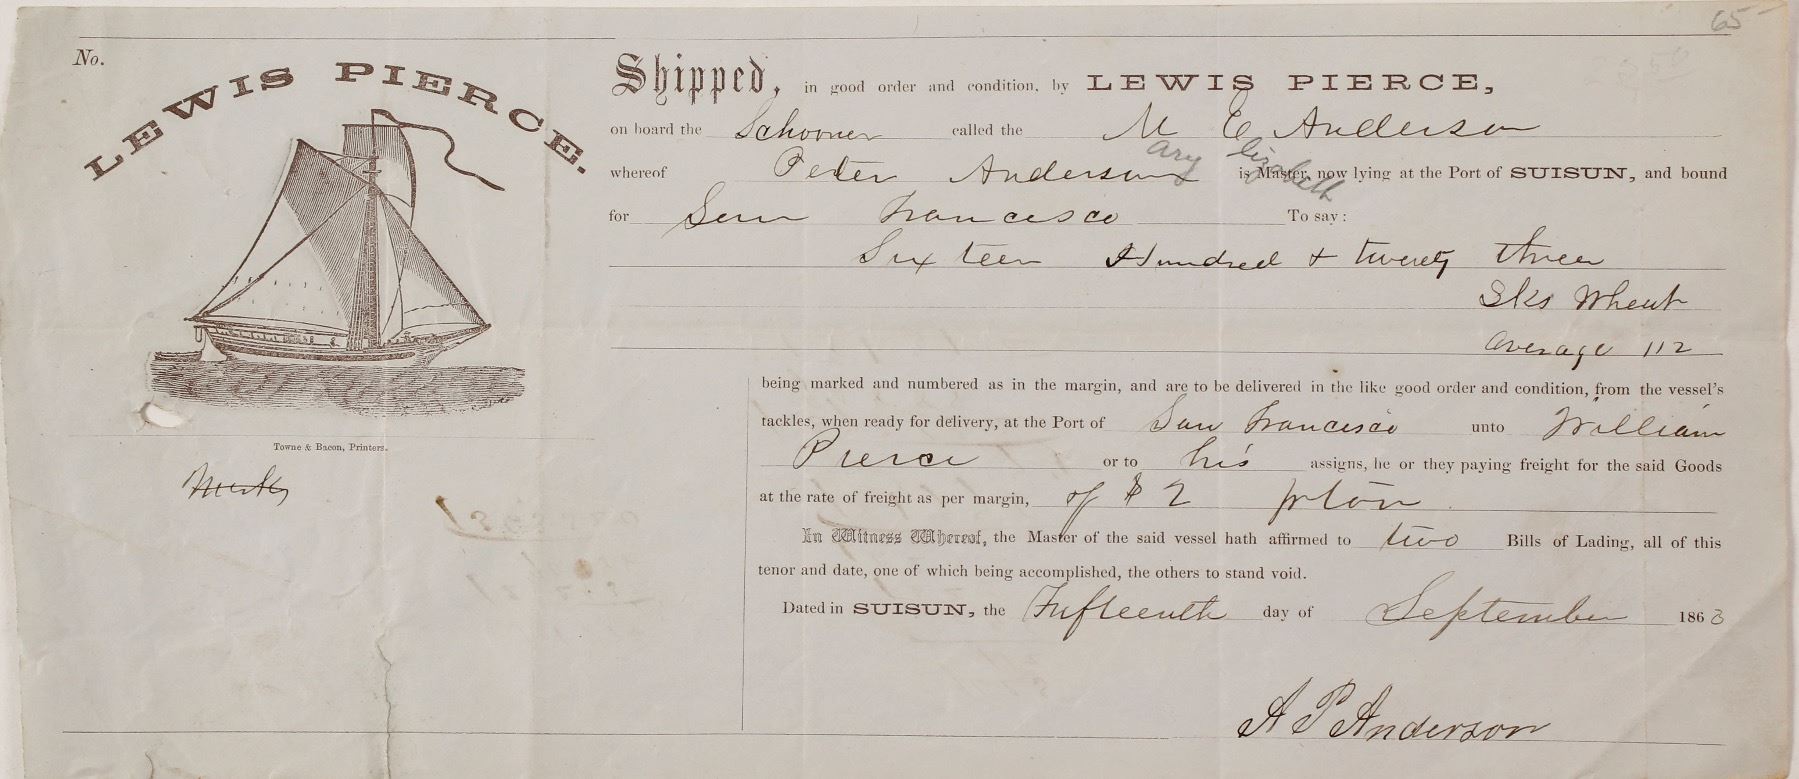 65
No.
LEWIS PIERCE.
Shipped, in good order and condition, by LEWIS PIERCE,
on board the Schooner called the M E Anderson
ary lizabeth
whereof Peter Anderson is Master, now lying at the Port of SUISUN, and bound
for San Francisco To say:
Sixteen Hundred & twenty three
Sks Wheat
average 112
being marked and numbered as in the margin, and are to be delivered in the like good order and condition, from the vessel's
tackles, when ready for delivery, at the Port of San Francisco unto William
Pierce or to his assigns, he or they paying freight for the said Goods
at the rate of freight as per margin, of $2 pr ton
In Witness Whereof, the Master of the said vessel hath affirmed to two Bills of Lading, all of this
tenor and date, one of which being accomplished, the others to stand void.
Dated in SUISUN, the Fifteenth day of September 1863
A P Anderson
Towne & Bacon, Printers.